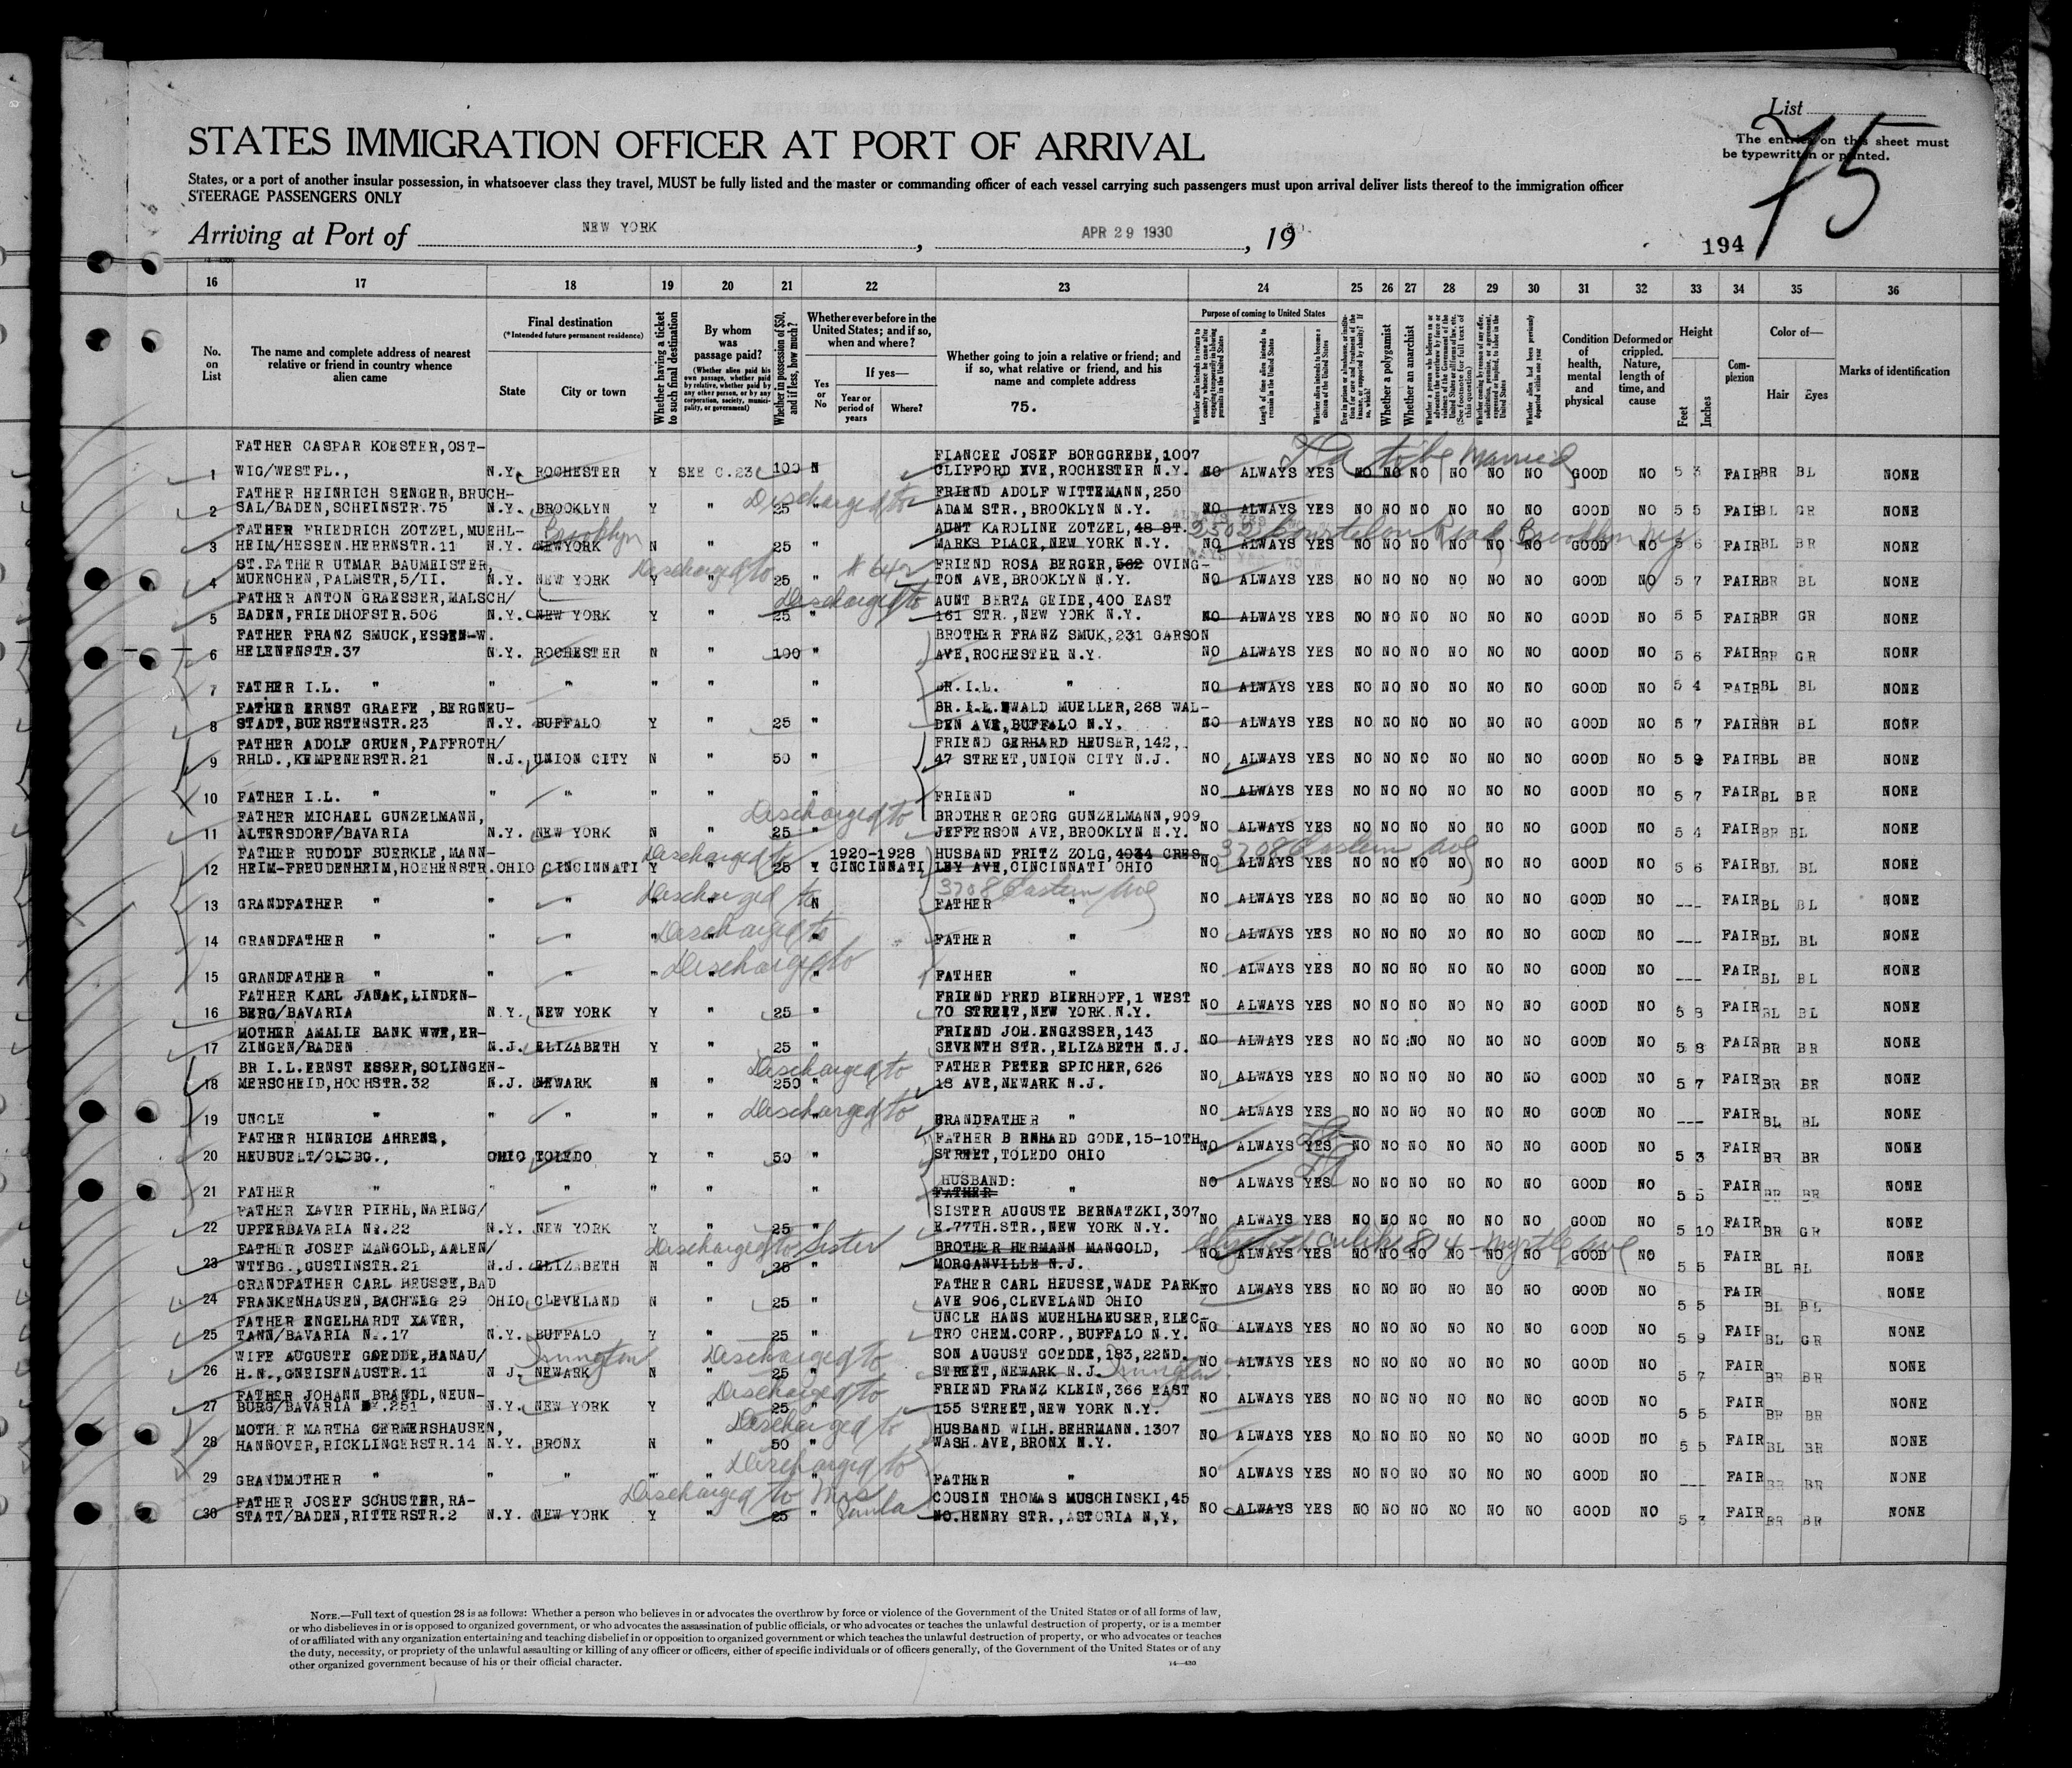 List
75
The entries on this sheet must
be typewritten or printed.
STATES IMMIGRATION OFFICER AT PORT OF ARRIVAL
States, or a port of another insular possession, in whatsoever class they travel, MUST be fully listed and the master or commanding officer of each vessel carrying such passengers must upon arrival deliver lists thereof to the immigration officer
STEERAGE PASSENGERS ONLY
Arriving at Port of NEW YORK, APR 29 1930, 19
194
16 17 18 19 20 21 22 23 24 25 26 27 28 29 30 31 32 33 34 35 36
No. on List
The name and complete address of nearest relative or friend in country whence alien came
Final destination
(*Intended future permanent residence)
State
City or town
Whether having a ticket to such final destination
By whom was passage paid?
(Whether alien paid his own passage, whether paid by relative, whether paid by any other person, or by any corporation, society, municipality, or government)
Whether in possession of $50, and if less, how much?
Whether ever before in the United States; and if so, when and where?
Yes or No
If yes—
Year or period of years
Where?
Whether going to join a relative or friend; and if so, what relative or friend, and his name and complete address
75.
Purpose of coming to United States
Whether a polygamist
Whether an anarchist
Condition of health, mental and physical
Deformed or crippled. Nature, length of time, and cause
Height
Feet
Inches
Complexion
Color of—
Hair
Eyes
Marks of identification
FATHER CASPAR KOESTER,OST- FIANCEE JOSEF BORGGREBE,1007 to be married
1 WIG/WESTFL., N.Y. ROCHESTER Y SEE C.23 100 N CLIFFORD AVE,ROCHESTER N.Y. NO ALWAYS YES NO NO NO NO NO NO GOOD NO 5 3 FAIR BR BL NONE
FATHER HEINRICH SENGER,BRUCH- Discharged to FRIEND ADOLF WITTEMANN,250
2 SAL/BADEN,SCHEINSTR.75 N.Y. BROOKLYN Y " 25 " ADAM STR.,BROOKLYN N.Y. NO ALWAYS YES NO NO NO NO NO NO GOOD NO 5 5 FAIR BL GR NONE
FATHER FRIEDRICH ZOTZEL,MUEHL- Brooklyn AUNT KAROLINE ZOTZEL,48 ST. 2502 Road Brooklyn NY
3 HEIM/HESSEN.HERRNSTR.11 N.Y. NEWYORK N " 25 " MARKS PLACE,NEW YORK N.Y. NO ALWAYS YES NO NO NO NO NO NO GOOD NO 5 6 FAIR BL BR NONE
ST.FATHER UTMAR BAUMEISTER, Discharged to # 642 FRIEND ROSA BERGER,562 OVING-
4 MUENCHEN,PALMSTR,5/II. N.Y. NEW YORK Y " 25 " TON AVE,BROOKLYN N.Y. NO ALWAYS YES NO NO NO NO NO NO GOOD NO 5 7 FAIR BR BL NONE
FATHER ANTON GRAESSER,MALSCH/ Discharged to AUNT BERTA GEIDE,400 EAST
5 BADEN,FRIEDHOFSTR.506 N.Y. NEW YORK Y 25 " 161 STR.,NEW YORK N.Y. NO ALWAYS YES NO NO NO NO NO NO GOOD NO 5 5 FAIR BR GR NONE
FATHER FRANZ SMUCK,ESSEN-W. BROTHER FRANZ SMUK,231 GARSON
6 HELENENSTR.37 N.Y. ROCHESTER N " 100 " AVE,ROCHESTER N.Y. NO ALWAYS YES NO NO NO NO NO NO GOOD NO 5 6 FAIR BR GR NONE
7 FATHER I.L. " " " " " " BR.I.L. " NO ALWAYS YES NO NO NO NO NO NO GOOD NO 5 4 FAIR BL BL NONE
FATHER ERNST GRAEFE ,BERGNEU- BR.I.L.EWALD MUELLER,268 WAL-
8 STADT,BUERSTENSTR.23 N.Y. BUFFALO Y " 25 " DEN AVE,BUFFALO N.Y. NO ALWAYS YES NO NO NO NO NO NO GOOD NO 5 7 FAIR BR BL NONE
FATHER ADOLF GRUEN,PAFFROTH/ FRIEND GERHARD HEUSER,142,
9 RHLD.,KEMPENERSTR.21 N.J. UNION CITY N " 50 " 47 STREET,UNION CITY N.J. NO ALWAYS YES NO NO NO NO NO NO GOOD NO 5 9 FAIR BL BR NONE
10 FATHER I.L. " " " " " " FRIEND " NO ALWAYS YES NO NO NO NO NO NO GOOD NO 5 7 FAIR BL BR NONE
FATHER MICHAEL GUNZELMANN, Discharged to BROTHER GEORG GUNZELMANN,909
11 ALTERSDORF/BAVARIA N.Y. NEW YORK N " 25 " JEFFERSON AVE,BROOKLYN N.Y. NO ALWAYS YES NO NO NO NO NO NO GOOD NO 5 4 FAIR BR BL NONE
FATHER RUDODF BUERKLE,MANN- Discharged to 1920-1928 HUSBAND FRITZ ZOLG,4034 CRES 3708 Eastern Ave
12 HEIM-FREUDENHEIM,HOEHENSTR. OHIO CINCINNATI Y " 25 Y CINCINNATI LEY AVE,CINCINNATI OHIO NO ALWAYS YES NO NO NO NO NO NO GOOD NO 5 6 FAIR BL BL NONE
Discharged to 3708 Eastern Ave
13 GRANDFATHER " " " " " N FATHER " NO ALWAYS YES NO NO NO NO NO NO GOOD NO --- FAIR BL BL NONE
Discharged to
14 GRANDFATHER " " " " " FATHER " NO ALWAYS YES NO NO NO NO NO NO GOOD NO --- FAIR BL BL NONE
Discharged to
15 GRANDFATHER " " " " " FATHER " NO ALWAYS YES NO NO NO NO NO NO GOOD NO --- FAIR BL BL NONE
FATHER KARL JANAK,LINDEN- FRIEND FRED BIERHOFF,1 WEST
16 BERG/BAVARIA N.Y. NEW YORK Y " 25 " 70 STREET,NEW YORK N.Y. NO ALWAYS YES NO NO NO NO NO NO GOOD NO 5 8 FAIR BL BL NONE
MOTHER AMALIE BANK WWE,ER- FRIEND JOH.ENGESSER,143
17 ZINGEN/BADEN N.J. ELIZABETH Y " 25 " SEVENTH STR.,ELIZABETH N.J. NO ALWAYS YES NO NO NO NO NO NO GOOD NO 5 8 FAIR BR BR NONE
BR I.L.ERNST ESSER,SOLINGEN- Discharged to FATHER PETER SPICHER,626
18 MERSCHEID,HOCHSTR.32 N.J. NEWARK N " 250 " 18 AVE,NEWARK N.J. NO ALWAYS YES NO NO NO NO NO NO GOOD NO 5 7 FAIR BR BR NONE
Discharged to
19 UNCLE " " " " " " GRANDFATHER " NO ALWAYS YES NO NO NO NO NO NO GOOD NO --- FAIR BL BL NONE
FATHER HINRICH AHRENS, FATHER B RNHARD GODE,15-10TH
20 HEUBUELT/OLDBG., OHIO TOLEDO Y " 50 " STREET,TOLEDO OHIO NO ALWAYS YES NO NO NO NO NO NO GOOD NO 5 3 FAIR BR BR NONE
HUSBAND:
21 FATHER " " " " " " FATHER " NO ALWAYS YES NO NO NO NO NO NO GOOD NO 5 5 FAIR BR BR NONE
FATHER XAVER PIEHL,NARING/ SISTER AUGUSTE BERNATZKI,307
22 UPPERBAVARIA Nr.22 N.Y. NEW YORK Y " 25 " E.77TH.STR.,NEW YORK N.Y. NO ALWAYS YES NO NO NO NO NO NO GOOD NO 5 10 FAIR BR GR NONE
FATHER JOSEF MANGOLD,AALEN/ Discharged to Sister BROTHER HERMANN MANGOLD, Elizabeth 814 Myrtle Ave
23 WTTBG.,GUSTINSTR.21 N.J. ELIZABETH N " 25 " MORGANVILLE N.J. NO ALWAYS YES NO NO NO NO NO NO GOOD NO 5 5 FAIR BL BL NONE
GRANDFATHER CARL HEUSSE,BAD FATHER CARL HEUSSE,WADE PARK
24 FRANKENHAUSEN,BACHWEG 29 OHIO CLEVELAND N " 25 " AVE 906,CLEVELAND OHIO NO ALWAYS YES NO NO NO NO NO NO GOOD NO 5 5 FAIR BL BL NONE
FATHER ENGELHARDT XAVER, UNCLE HANS MUEHLHAEUSER,ELEC-
25 TANN/BAVARIA Nr.17 N.Y. BUFFALO Y " 25 " TRO CHEM.CORP.,BUFFALO N.Y. NO ALWAYS YES NO NO NO NO NO NO GOOD NO 5 9 FAIR BL GR NONE
WIFE AUGUSTE GOEDDE,HANAU/ Irvington Discharged to SON AUGUST GOEDDE,183,22ND.
26 H.N.,GNEISENAUSTR.11 N J. NEWARK N " 25 " STREET,NEWARK N.J. Irvington NO ALWAYS YES NO NO NO NO NO NO GOOD NO 5 7 FAIR BR BR NONE
FATHER JOHANN BRANDL,NEUN- Discharged to FRIEND FRANZ KLEIN,366 EAST
27 BURG/BAVARIA Nr.251 N.Y. NEW YORK Y " 25 " 155 STREET,NEW YORK N.Y. NO ALWAYS YES NO NO NO NO NO NO GOOD NO 5 5 FAIR BR BR NONE
MOTH R MARTHA GERMERSHAUSEN, Discharged to HUSBAND WILH.BEHRMANN.1307
28 HANNOVER,RICKLINGERSTR.14 N.Y. BRONX N " 50 " WASH.AVE,BRONX N.Y. NO ALWAYS YES NO NO NO NO NO NO GOOD NO 5 5 FAIR BL BR NONE
Discharged to
29 GRANDMOTHER " " " " " " FATHER " NO ALWAYS YES NO NO NO NO NO NO GOOD NO --- FAIR BR BR NONE
FATHER JOSEF SCHUSTER,RA- Discharged to Mrs Paula COUSIN THOMAS MUSCHINSKI,45
30 STATT/BADEN,RITTERSTR.2 N.Y. NEW YORK Y " 25 " NO.HENRY STR.,ASTORIA N,Y, NO ALWAYS YES NO NO NO NO NO NO GOOD NO 5 3 FAIR BR BR NONE
NOTE.—Full text of question 28 is as follows: Whether a person who believes in or advocates the overthrow by force or violence of the Government of the United States or of all forms of law,
or who disbelieves in or is opposed to organized government, or who advocates the assassination of public officials, or who advocates or teaches the unlawful destruction of property, or is a member
of or affiliated with any organization entertaining and teaching disbelief in or opposition to organized government or which teaches the unlawful destruction of property, or who advocates or teaches
the duty, necessity, or propriety of the unlawful assaulting or killing of any officer or officers, either of specific individuals or of officers generally, of the Government of the United States or of any
other organized government because of his or their official character.
14—430